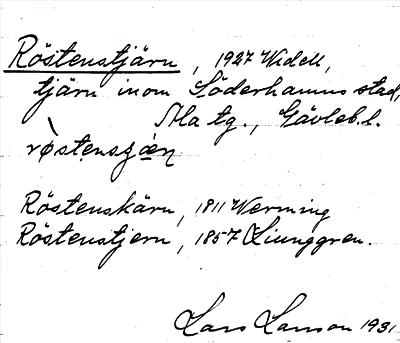 Röstenstjärn, 1927 Widell,
tjärn inom Söderhamns stad,
Ala tg., Gävleb. l.
Röstenskärn, 1811 Werming
Röstenstjern, 1857 Ljunggren.
Lars Larson 1931